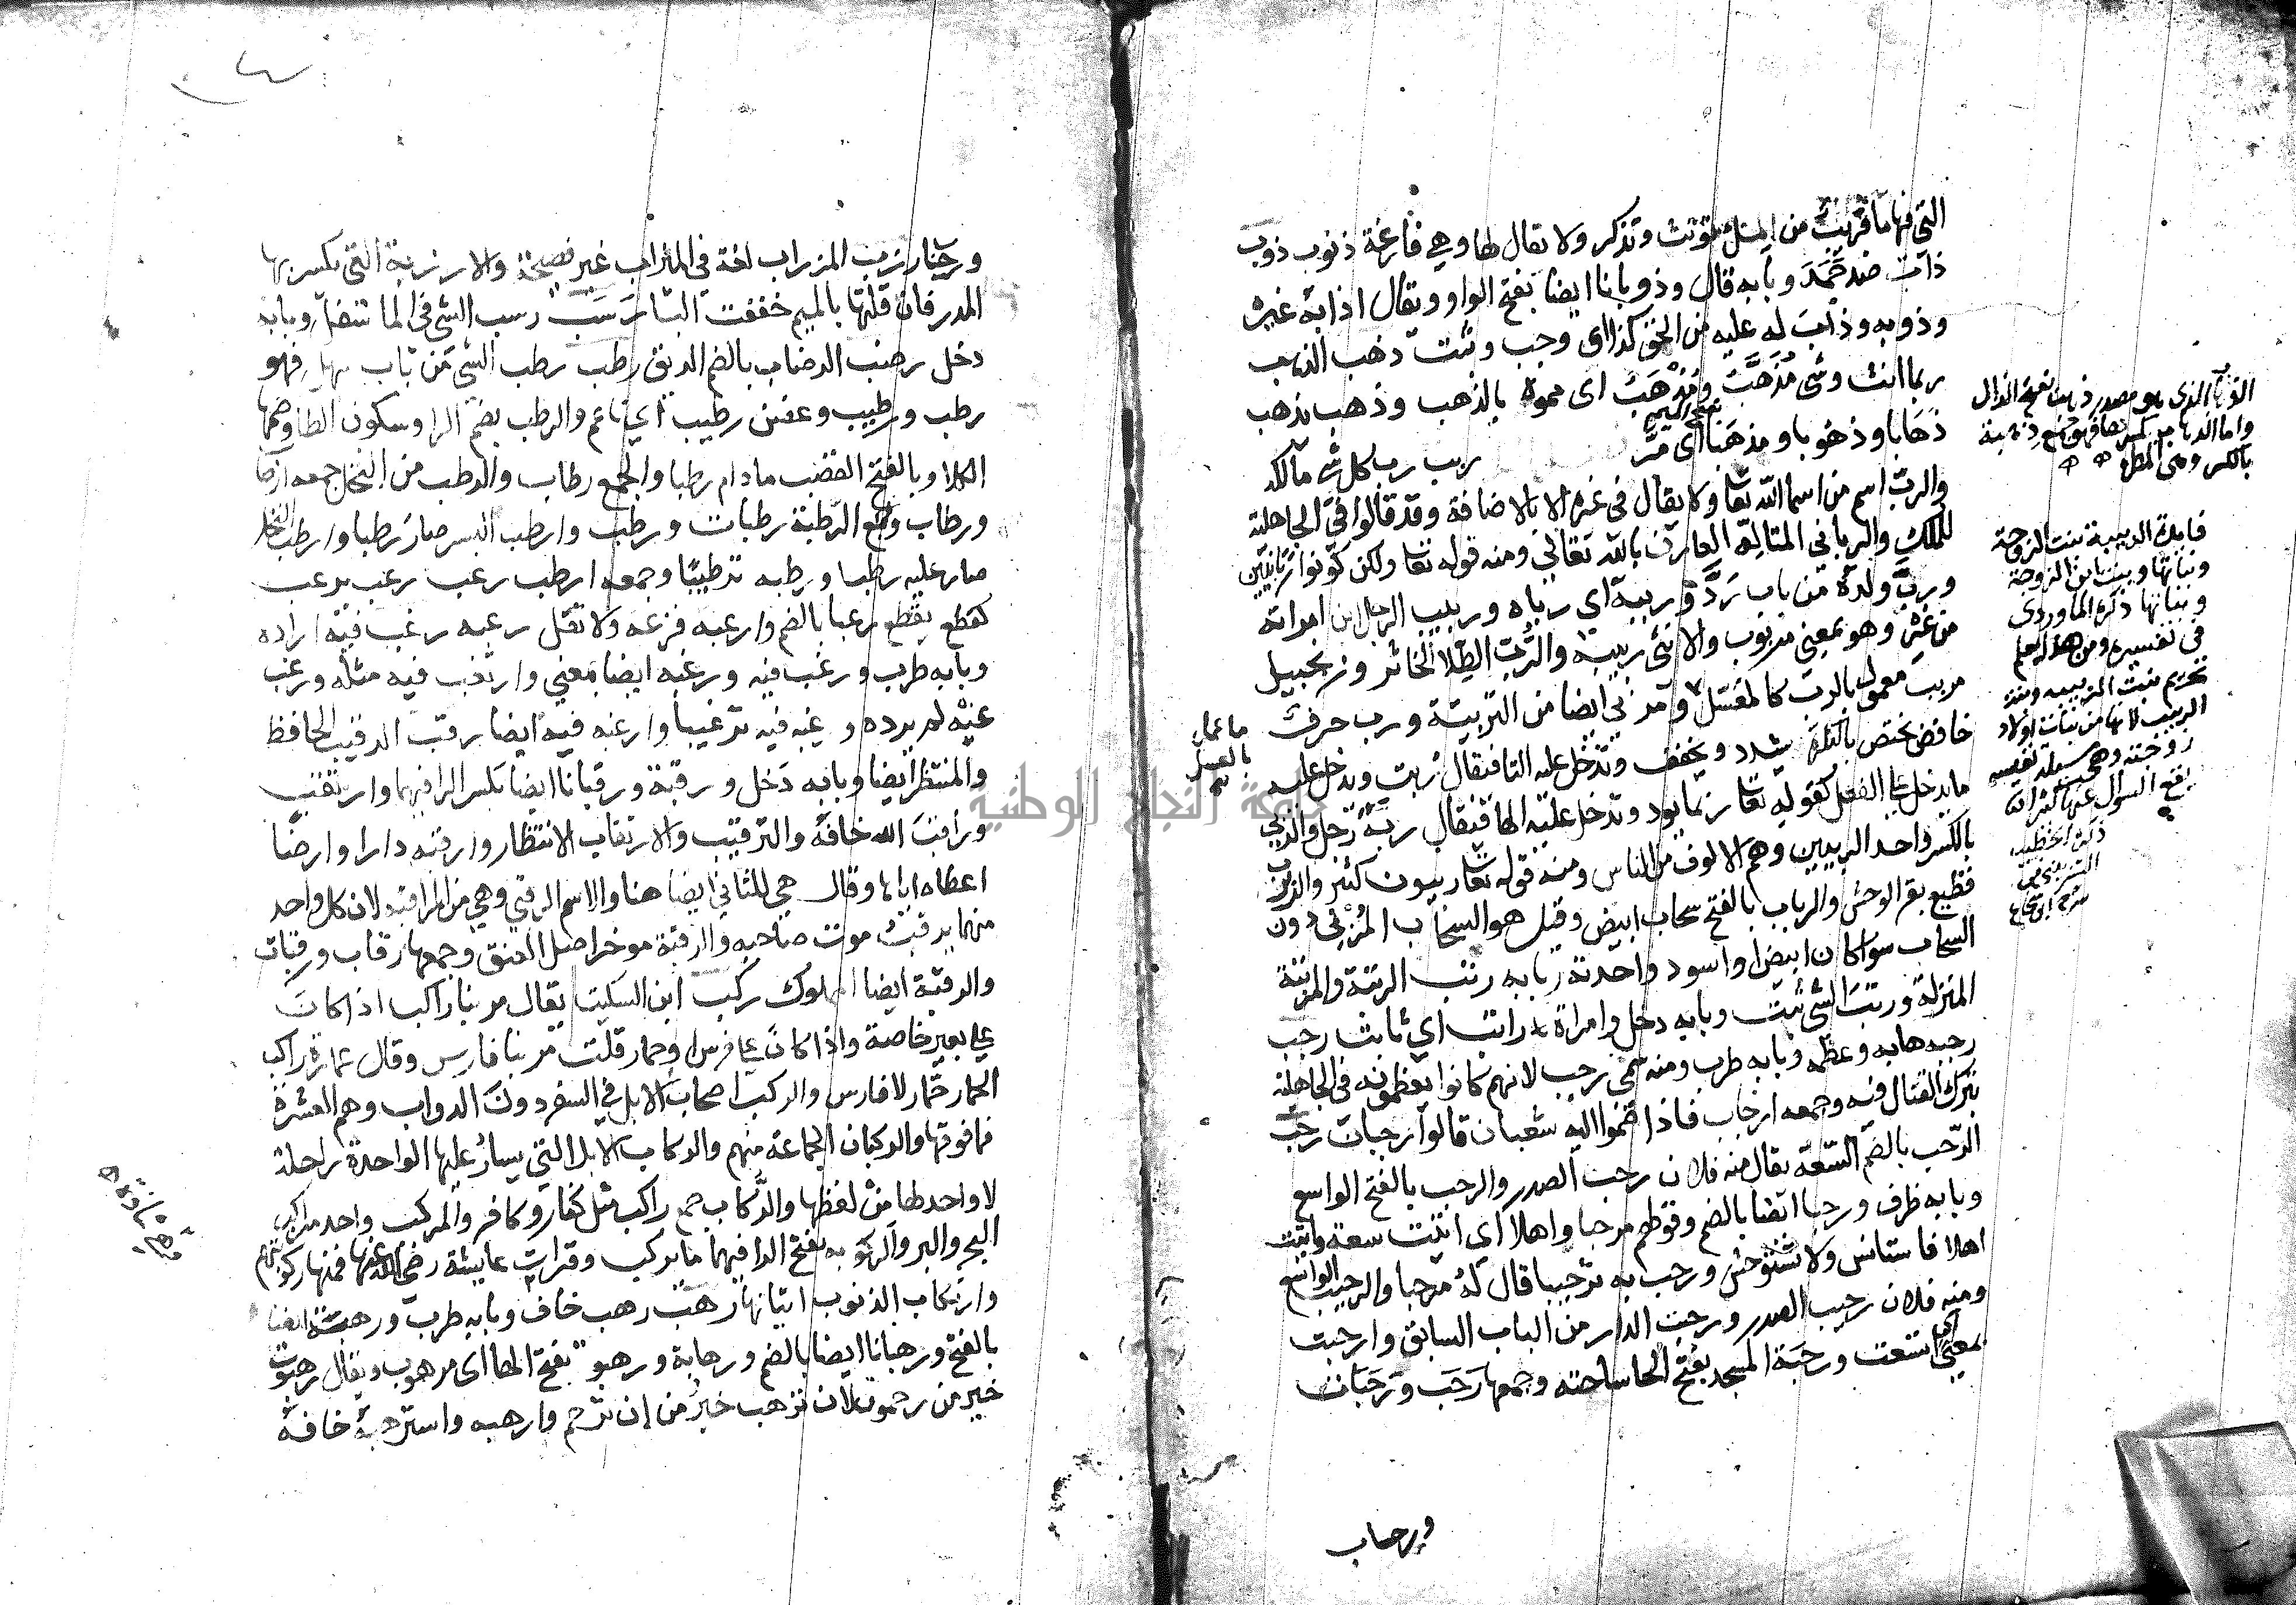 التي فيها ما قريب من الملئ تؤنث وتذكر ولا يقال لها وهي فارغة ذنوب ذوب
ذاب ضد جمد وبابه قال وذوبانا ايضا بفتح الواو ويقال اذابه غيره
وذوبه وذاب له عليه من الحق كذا اى وجب وثبت ذهب الذهب
ربما انث وشى مُذَهَّب ومُذْهَب اى مموه بالذهب وذهب يذهب
ذهابا وذهوبا ومذهبا بفتح الميم اى مَرَّ ربب رب كل شى مالكه
والربّ اسم من اسما الله تعا ولا يقال فى غيره الا بالاضافة وقد قالوا فى الجاهلية
للملك والرباني المتالِّه العارف بالله تعالى ومنه قوله تعا ولكن كونوا ربانيين
وربَّ ولده من باب رَدَّ ورببه اى رباه وربيب الرجل ابن امراته
من غيره وهو بمعنى مربوب والانثى ربيبة والرُّب الطِّلا الخاثر وزنجبيل
مربب معمول بالرب كالمعسل ومربي ايضا من التربية ورب حرف
خافض يختص بالنكرة يشدد ويخفف وتدخل عليه التا فيقال ربت ويدخل عليه
ما ليدخل على الفعل كقوله تعا ربما يود وتدخل عليه الها فيقال ربه رجل والربي
بالكسر واحد الربيين وهم الالوف من الناس ومنه قوله تعا ربيون كثير والربرب
قطيع بقر الوحش والرباب بالفتح سحاب ابيض وقيل هو السحاب المرئي دون
السحاب سوا كان ابيض او اسود واحدته ربابه رتب الرتبة والمرتبة
المنزلة ورتب الشى ثبت وبابه دخل وامراة راتب اي ثابت رجب
رجبه هابه وعظمه وبابه طرب ومنه سمى رجب لانهم كانوا يعظمونه فى الجاهلية
بترك القتال فيه وجمعه ارجاب فاذا ضموا اليه شعبان قالوا رجبان رحب
الرحب بالضم السعة يقال منه فلان رحب الصدر والرحب بالفتح الواسع
وبابه ظرف ورحبا ايضا بالضم وقولهم مرحبا واهلا اى اتيت سعة واتيت
اهلا فاستانس ولا تستوحش ورحب به ترحيبا قال له مرحبا والرحيب الواسع
ومنه فلان رحيب الصدر ورحبت الدار من الباب السابق وارحبت
بمعنى اى اتسعت ورحبة المسجد بفتح الحا ساحته وجمعها رَحَب ورَحَبَات
ورحاب
الذهاب الذى هو مصدر ذهب بفتح الذال
واما الذهاب بكسرها فهو جمع ذهبة
بالكسر وهى المطرة
فايدة الربيبة بنت الزوجة
وبناتها وبنت ابن الزوجة
وبناتها ذكره الماوردى
فى تفسيره ومن هذا يعلم
تحريم بنت الربيبه وبنت
الربيب لانها من بنات اولاد
زوجته وهى مسئلة نفيسه
يقع السوال عنها كثيرا انتهى
ذكره الخطيب
الشربينى فى
شرح ابى شجاع
ما عمل
بالعسل
ورحاب رزب المرزاب لغة في الميزاب غير فصيحة والارزبة التي يكسر بها
المدر فان قلتها بالميم خففت البا رسب رسب الشى فى الما سفل وبابه
دخل رضب الرضاب بالضم الريق رطب رطب الشى من باب سهل فهو
رطب ورطيب وغصن رطيب اي ناعم والرطب بضم الرا وسكون الطا وضمها
الكلا وبالفتح القضب مادام رطبا والجمع رطاب والرطب من النخل جمعه ارطاب
ورطاب وجمع الرّطبة رطبات ورطب وارطب البسر صار رطبا وارطب النخل
صار عليه رطبا ورطبه ترطيبًا وجمعه ارطب رعب رعب يرعب
كقطع يقطع رعبا بالضم وارعبه فزعه ولا تقل رعبه رغب رغب فيه اراده
وبابه طرب ورغب فيه ورغبه ايضا بمعني وارتغب فيه مثله ورغب
عنه لم يرده ورغبه فيه ترغيبا وارغبه فيه ايضا رقب الرقيب الحافظ
والمنتظر ايضا وبابه دخل ورقبة ورقبانا ايضا بكسر الرا فيهما وارتقب
وراقب الله خافه والترقب والارتقاب الانتظار وارقبه دارا وارضا
اعطاه اياها وقال هي للثاني ايضا هنا والاسم الرقبي وهي من المراقبة لان كل واحد
منهما يرقب موت صاحبه والرقبة موخر اصل العنق وجمعها رقاب ورقبات
والرقبة ايضا المملوك ركب ابن السكيت يقال مر بنا راكب اذا كان
على بعير خاصة واذا كان على فرس او حمار قلت مر بنا فارس وقال عمارة راكب
الحمار حمّار لا فارس والركب اصحاب الابل فى السفر دون الدواب وهم العشرة
فما فوقها والركبان الجماعة منهم والركاب الابل التي يسار عليها الواحدة راحلة
لا واحد لها من لفظها والرُّكاب جمع راكب مثل كفار وكافر والمركب واحد مراكب
البحر والبر والركوبه بفتح الرا فيهما ما يركب وقرات عايشة رضى الله عنها فمنها ركوبتهم
وارتكاب الذنوب اتيانها رهب رهب خاف وبابه طرب ورهبة ايضا
بالفتح ورهبانا ايضا بالضم ورهابة ورهبو بفتح الها اى مرهوب ويقال رهبوت
خير من رحموت لان ترهب خير من ان ترحم وارهبه واسترهبه خافه
جامعة النجاح الوطنية